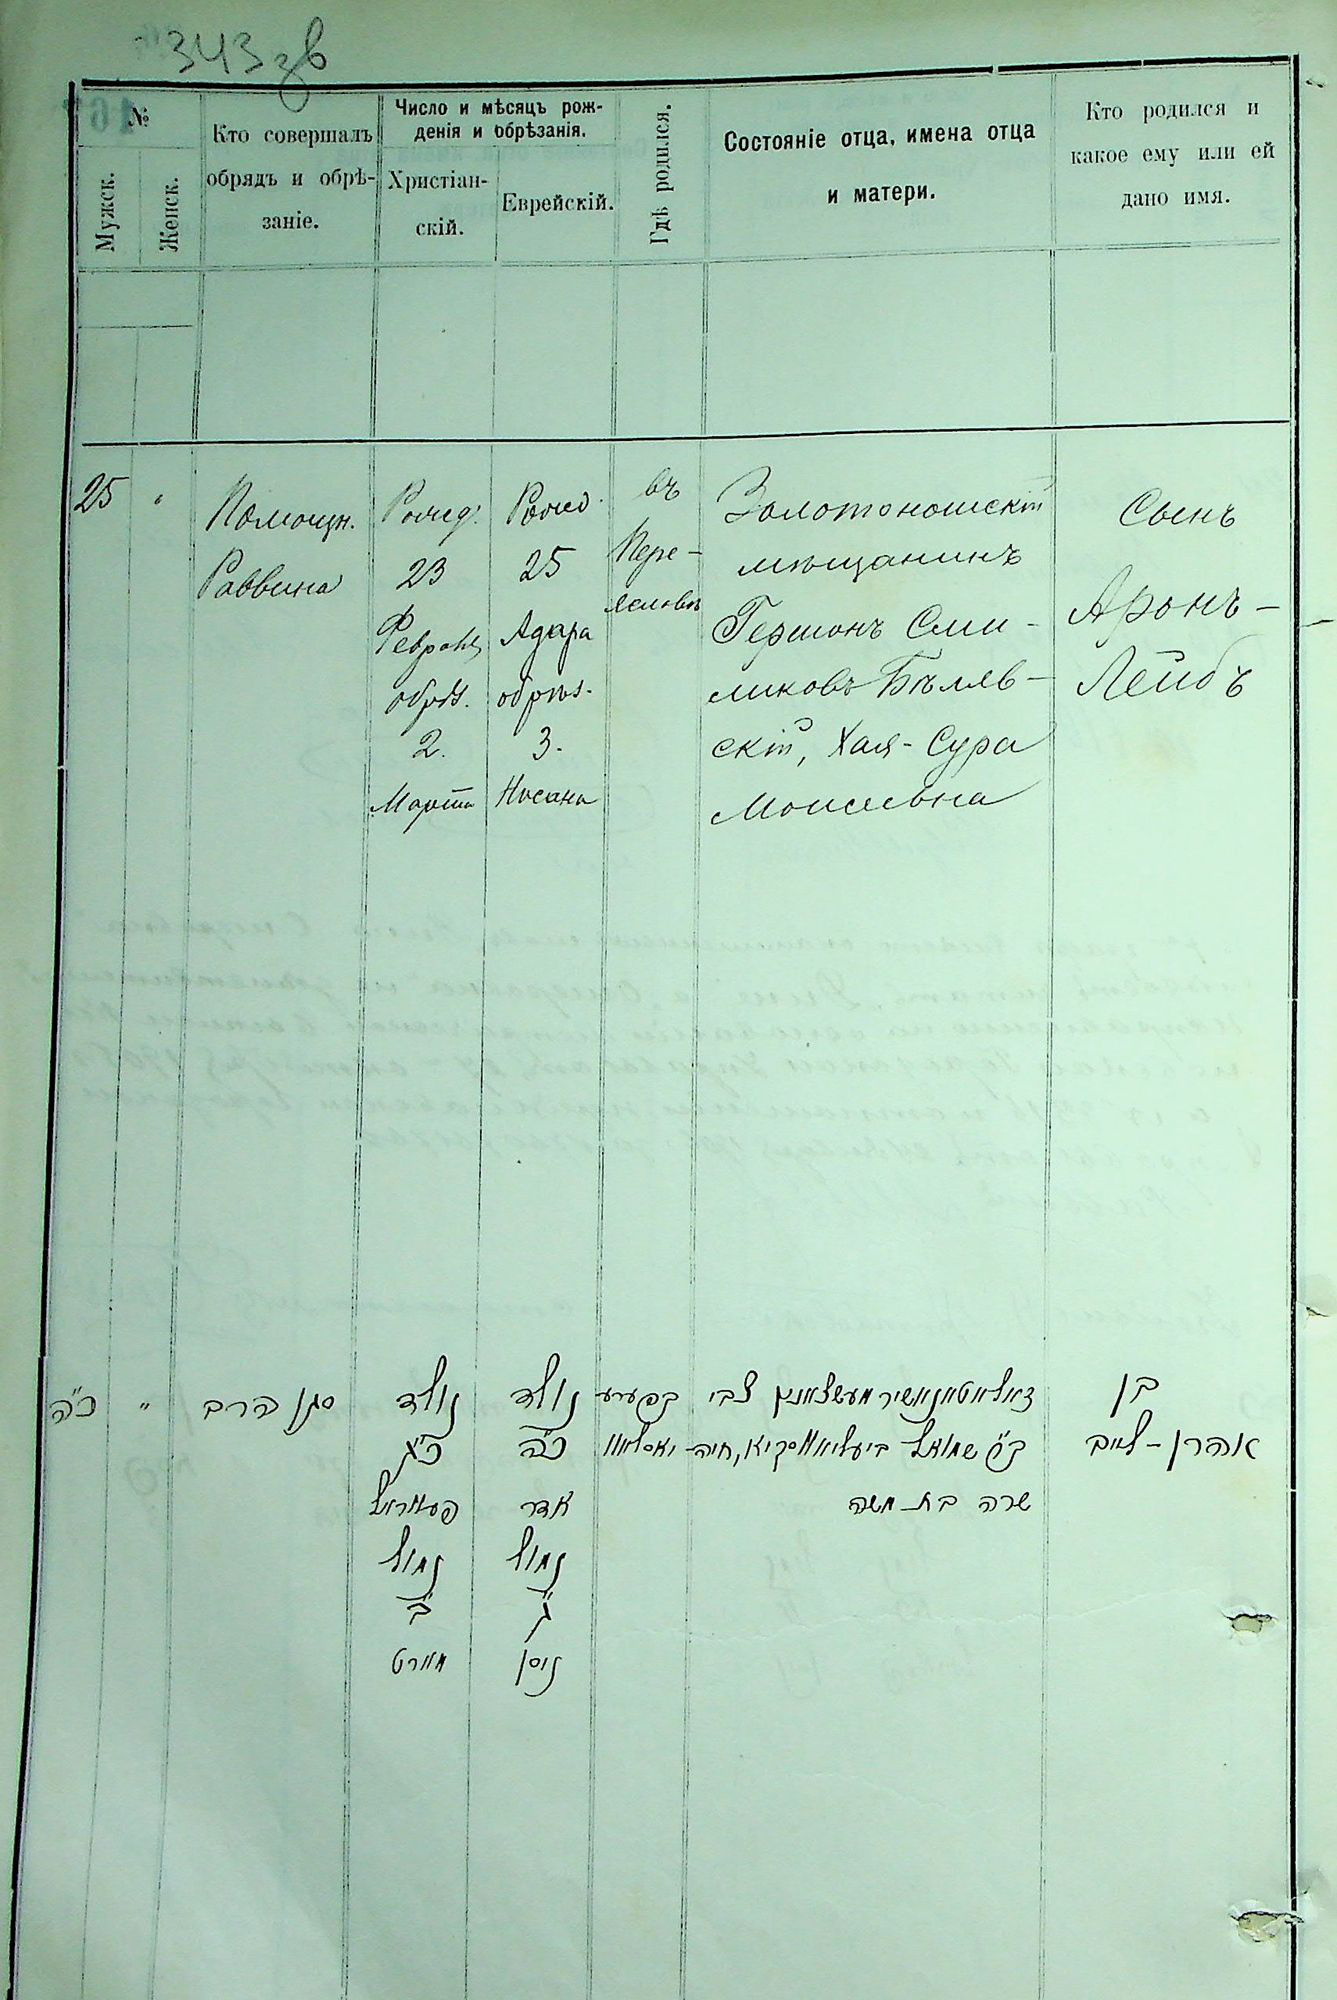 343 зв
№
Мужск.
Женск.
Кто совершалъ
обрядъ и обрѣ-
заніе.
Число и мѣсяцъ рож-
денія и обрѣзанія.
Христіан-
скій.
Еврейскій.
Гдѣ родился.
Состояніе отца, имена отца
и матери.
Кто родился и
какое ему или ей
дано имя.
25 "
Помощн.
Раввина
Рожд.
23
Февраля
обрѣз.
2.
Марта
Рожд.
25
Адара
обрѣз.
3.
Нисана
въ
Пере-
яславѣ
Золотоношскій
мѣщанинъ
Гершонъ
Бѣляв-
скій, Хая-Сура
Моисеевна
Сынъ
Аронъ-
Лейбъ
כ"ה "
סגן הרב
נולד
כ"ג
פעווראל
נמול
ב'
מארט
נולד
כ"ה
אדר
נמול
ג'
ניסן
בפערע
יאסלאוו
זאלאטאנאשיר מעשצאנין צבי
ב"ר שמואל ביעליאווסקי, חיה-
שרה בת משה
בן
אהרן-לייב